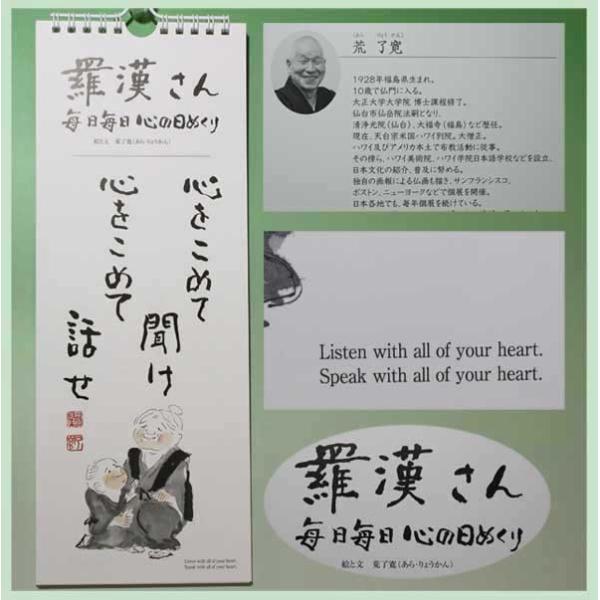 羅漢さん
毎日毎日 心の日めくり
絵と文 荒了寛(あら・りょうかん)
心をこめて
聞け
心をこめて
話せ
Listen with all of your heart.
Speak with all of your heart.
(あら りょう かん)
荒 了寛
1928年福島県生まれ。
10歳で仏門に入る。
大正大学大学院 博士課程修了。
仙台市仙岳院法嗣となり、
清浄光院(仙台)、大福寺(福島)など歴任。
現在、天台宗米国ハワイ別院。大僧正。
ハワイ及びアメリカ本土で布教活動に従事。
その傍ら、ハワイ美術院、ハワイ学院日本語学校などを設立、
日本文化の紹介、普及に努める。
独自の画報による仏画も描き、サンフランシスコ、
ボストン、ニューヨークなどで個展を開催。
日本各地でも、毎年個展を続けている。
Listen with all of your heart.
Speak with all of your heart.
羅漢さん
毎日毎日 心の日めくり
絵と文 荒了寛(あら・りょうかん)